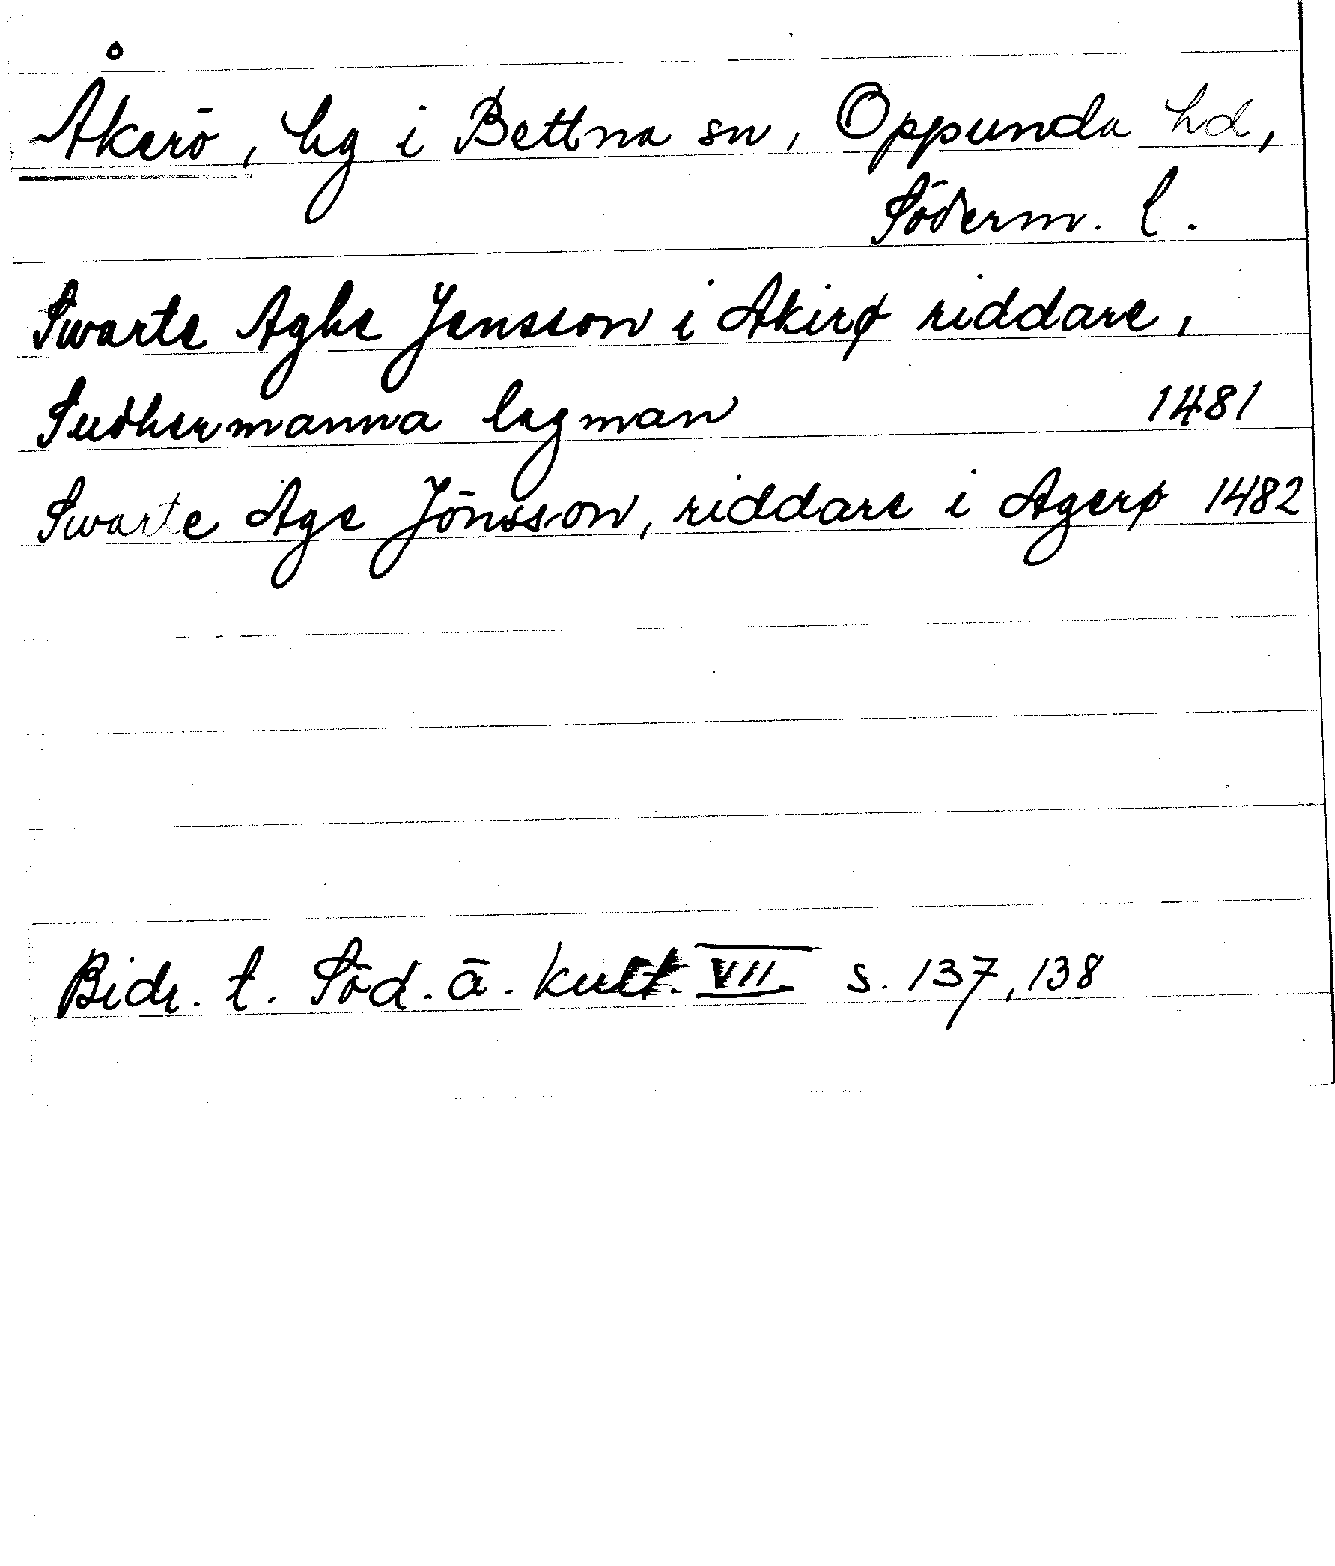 Åkerö, hg i Bettna sn, Oppunda hd,
Söderm. l.
Swarte Aghe Jensson i Akirø riddare,
Sudhermanna lagman 1481
Swarte Age Jönsson, riddare i Agerø 1482
Bidr. t. Söd. ä. kult. VII s. 137, 138